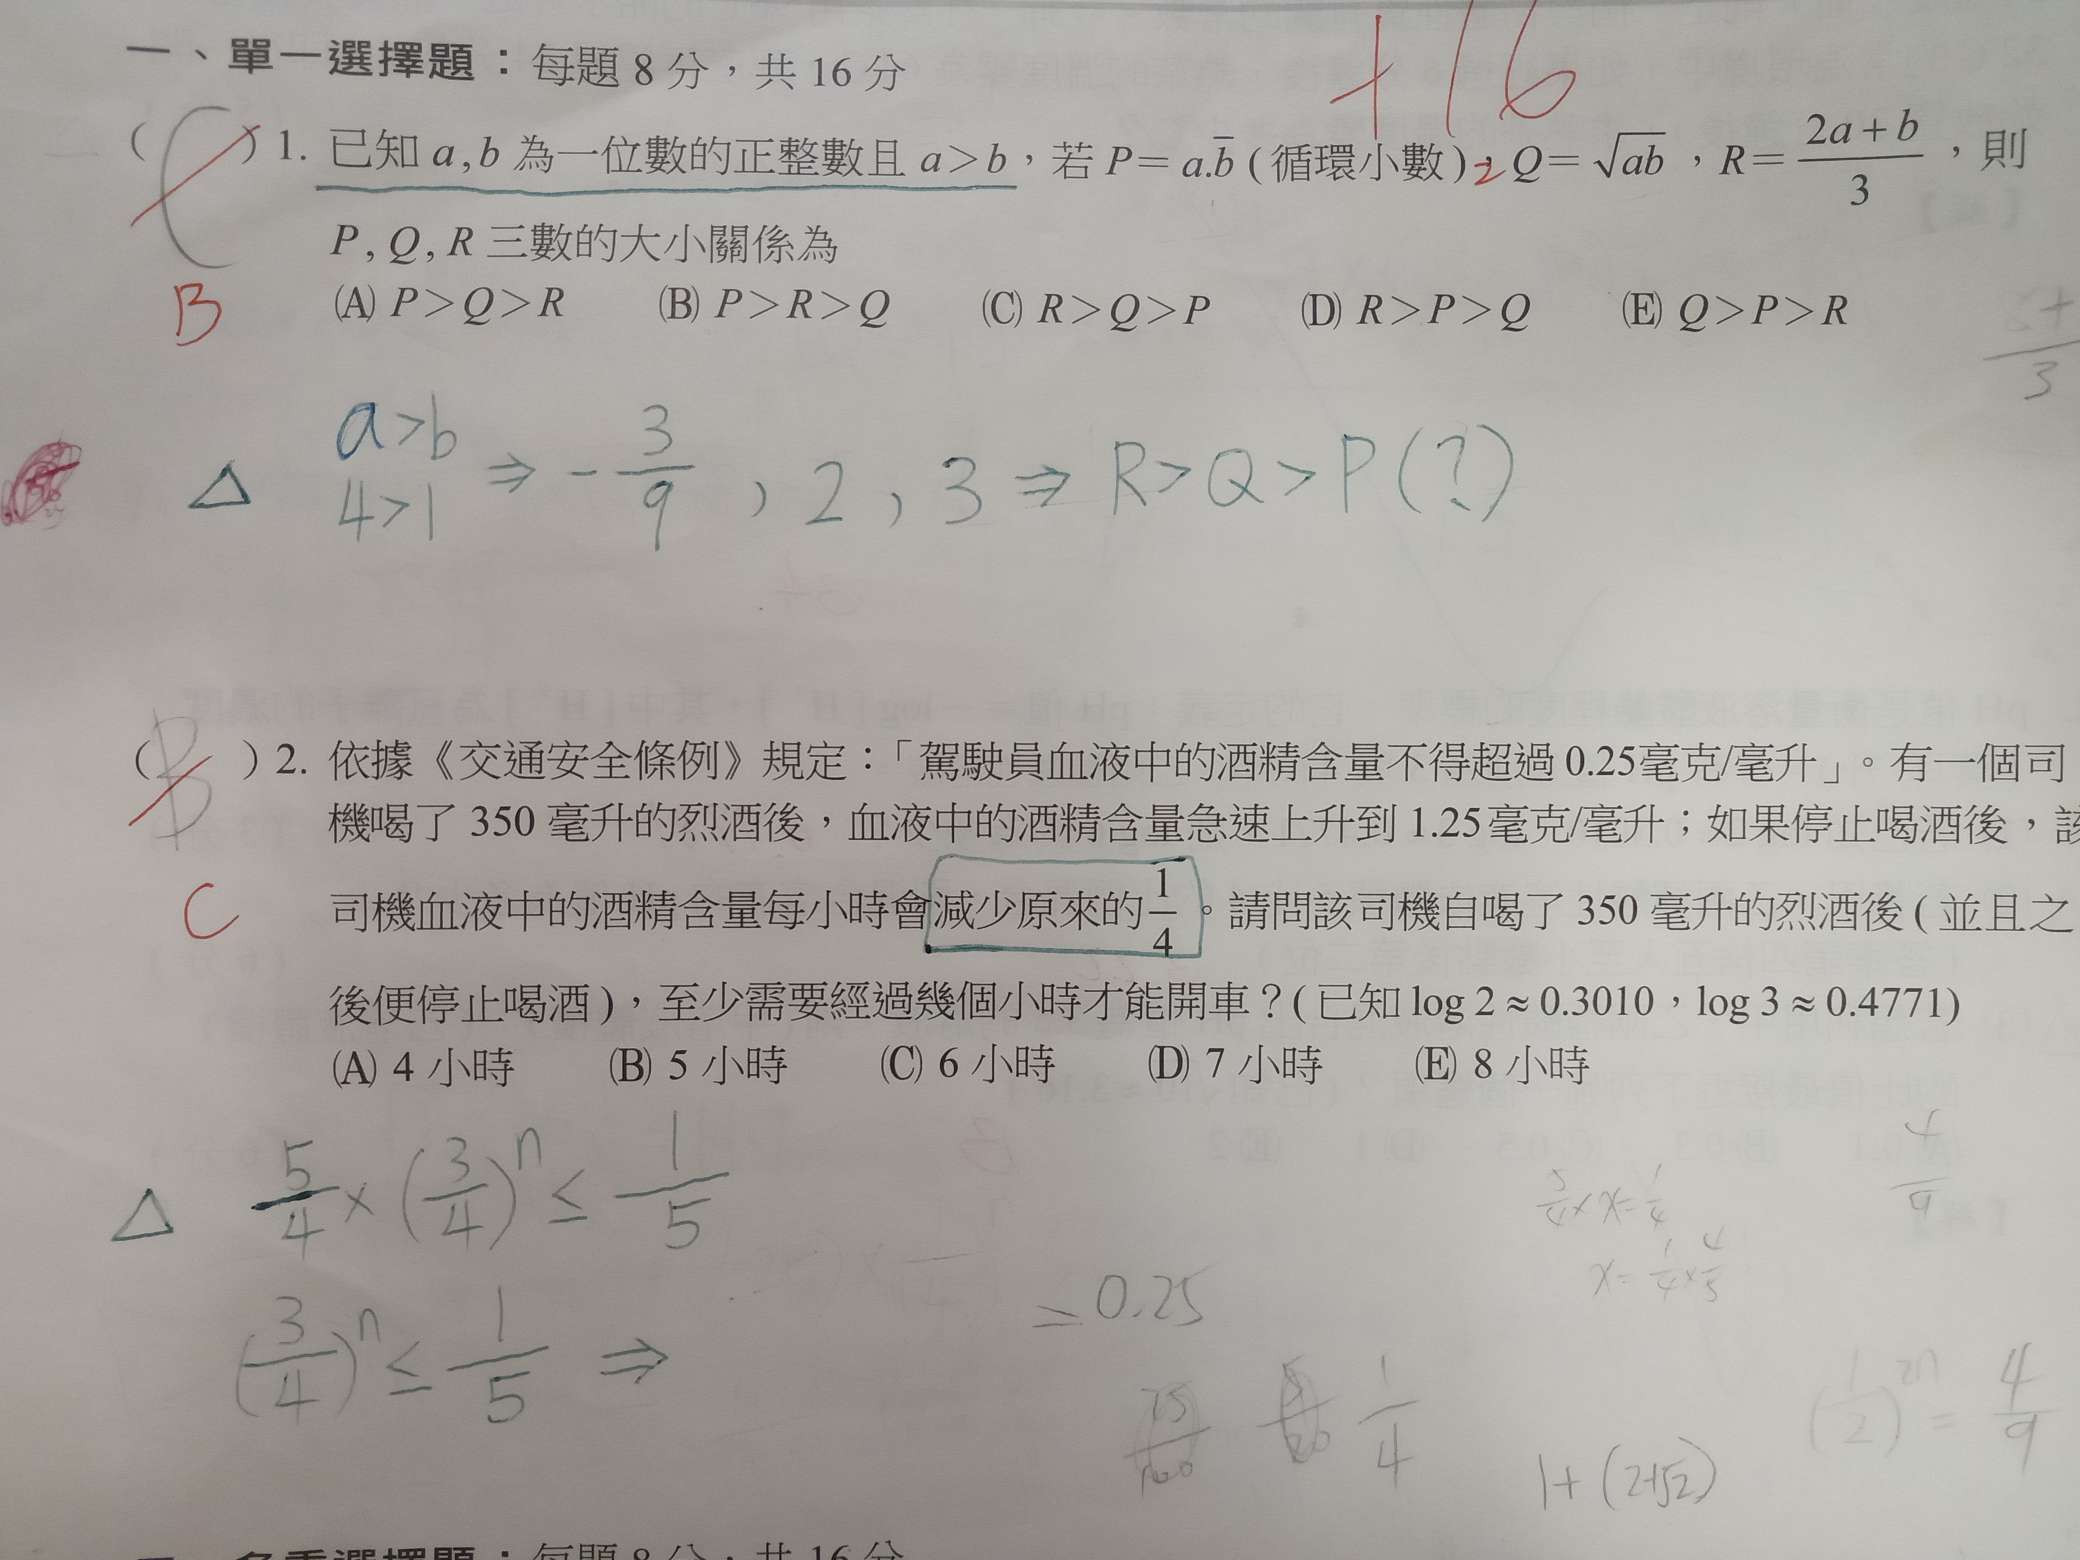 一、單一選擇題：每題 8 分，共 16 分
+16
( C ) 1. 已知 a , b 為一位數的正整數且 a > b，若 P = a.b̅ ( 循環小數 )，Q = √ab，R = (2a + b)/3，則
P , Q , R 三數的大小關係為
B
(A) P > Q > R (B) P > R > Q (C) R > Q > P (D) R > P > Q (E) Q > P > R
△ a>b
4>1 ⇒ -3/9 , 2 , 3 ⇒ R>Q>P(?)
( B ) 2. 依據《交通安全條例》規定：「駕駛員血液中的酒精含量不得超過 0.25毫克/毫升」。有一個司
機喝了 350 毫升的烈酒後，血液中的酒精含量急速上升到 1.25毫克/毫升；如果停止喝酒後，該
C
司機血液中的酒精含量每小時會減少原來的 1/4。請問該司機自喝了 350 毫升的烈酒後 ( 並且之
後便停止喝酒 )，至少需要經過幾個小時才能開車？( 已知 log 2 ≈ 0.3010，log 3 ≈ 0.4771)
(A) 4 小時 (B) 5 小時 (C) 6 小時 (D) 7 小時 (E) 8 小時
△ 5/4 × (3/4)^n ≤ 1/5
(3/4)^n ≤ 1/5 ⇒
≥ 0.25
1/4
1+(2+√2)
(1/2)^2n = 4/9
多重選擇題：每題 8 分，共 16 分